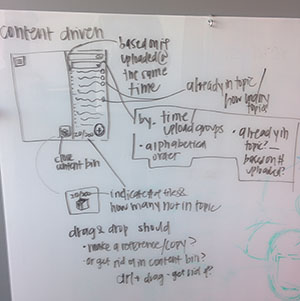 content driven
based on if
uploaded @
the same
time
already in topic/
how many
topics
by - time/
upload groups
• alphabetical
order
• already in
topic? -
based on #
uploaded?
close
content bin
indicate # files &
how many not in topic
drag & drop should
• make a reference/copy?
• or get rid of in content bin?
ctrl + drag - get rid of?